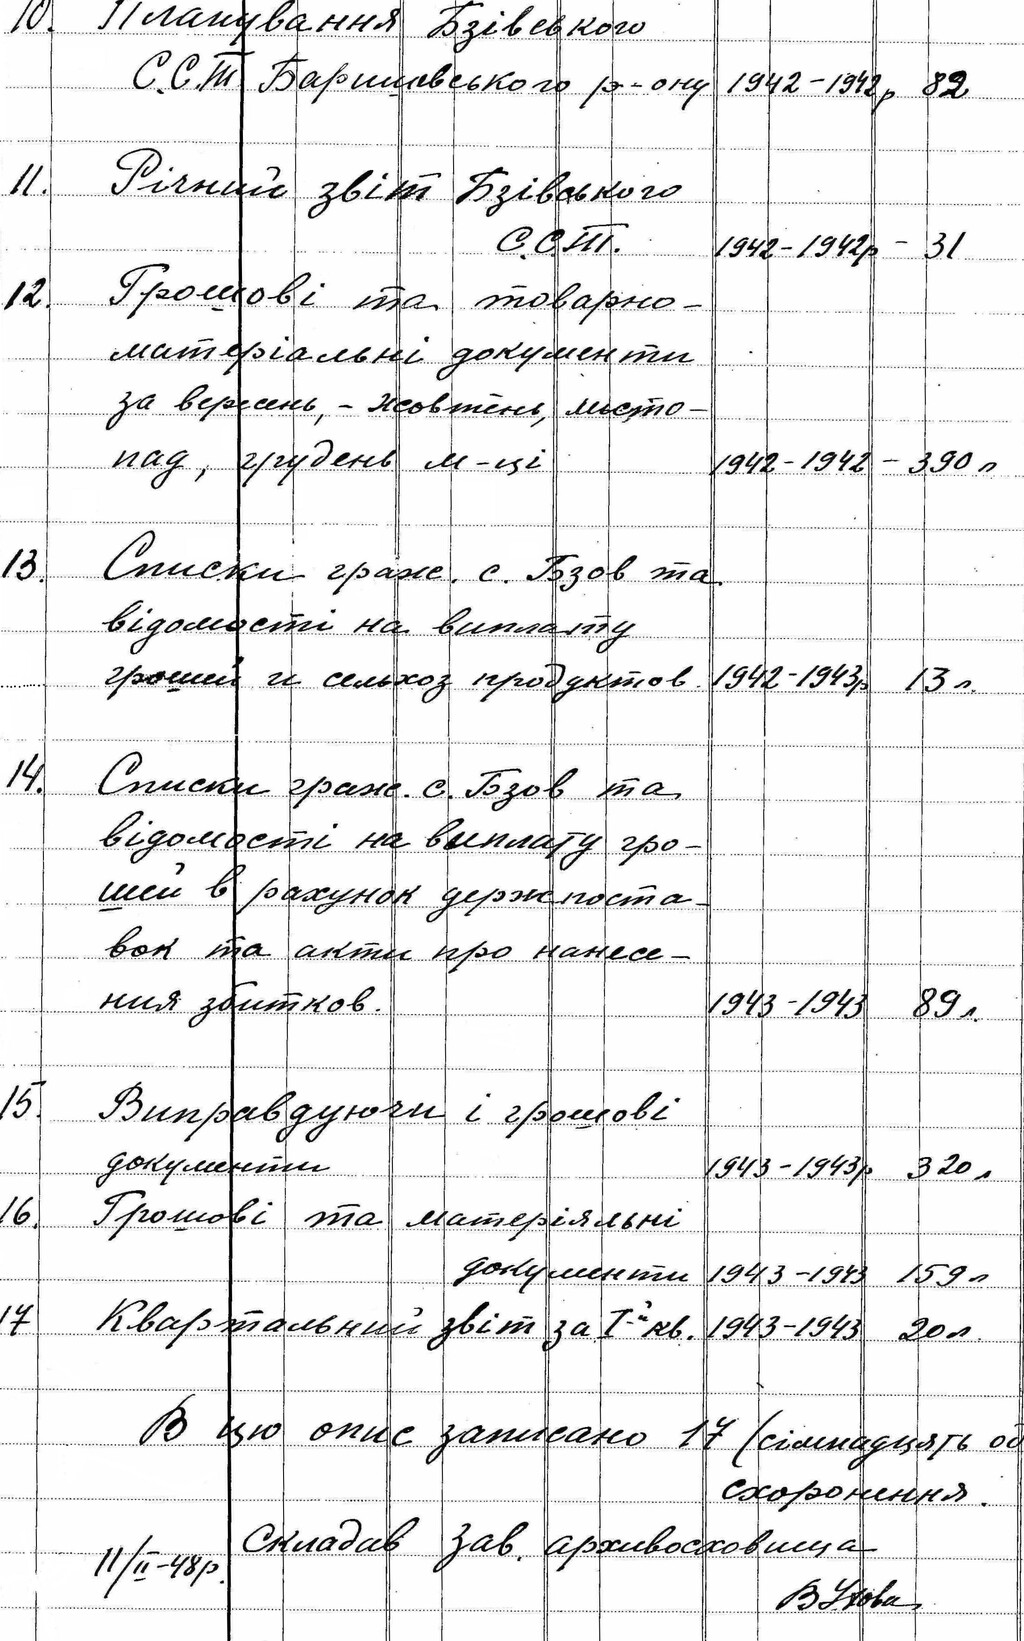 10. Планування Бзівського
С.С.Т. Баришевського р-ону 1942-1942р 82
11. Річний звіт Бзівського
С.С.Т. 1942-1942р - 31
12. Грошові та товарно-
матеріальні документи
за вересень, - жовтень, листо-
пад, грудень м-ці 1942-1942 - 390 л
13. Списки граж. с. Бзов та
відомості на виплату
грошей и сельхоз продуктов 1942-1943р 13 л.
14. Списки граж. с. Бзов та
відомості на выплату гро-
шей в рахунок держпоста-
вок та акти про нанесе-
ния збитков. 1943-1943 89 л.
15. Виправдуючи і грошові
документи 1943-1943р 320 л
16. Грошові та матеріяльні
документи 1943-1943 159 л
17 Квартальний звіт за I-й кв. 1943-1943 20 л.
В цю опис записано 17 (сімнадцять об
схоронення.
Складав зав. архивосховища
11/II-48р.